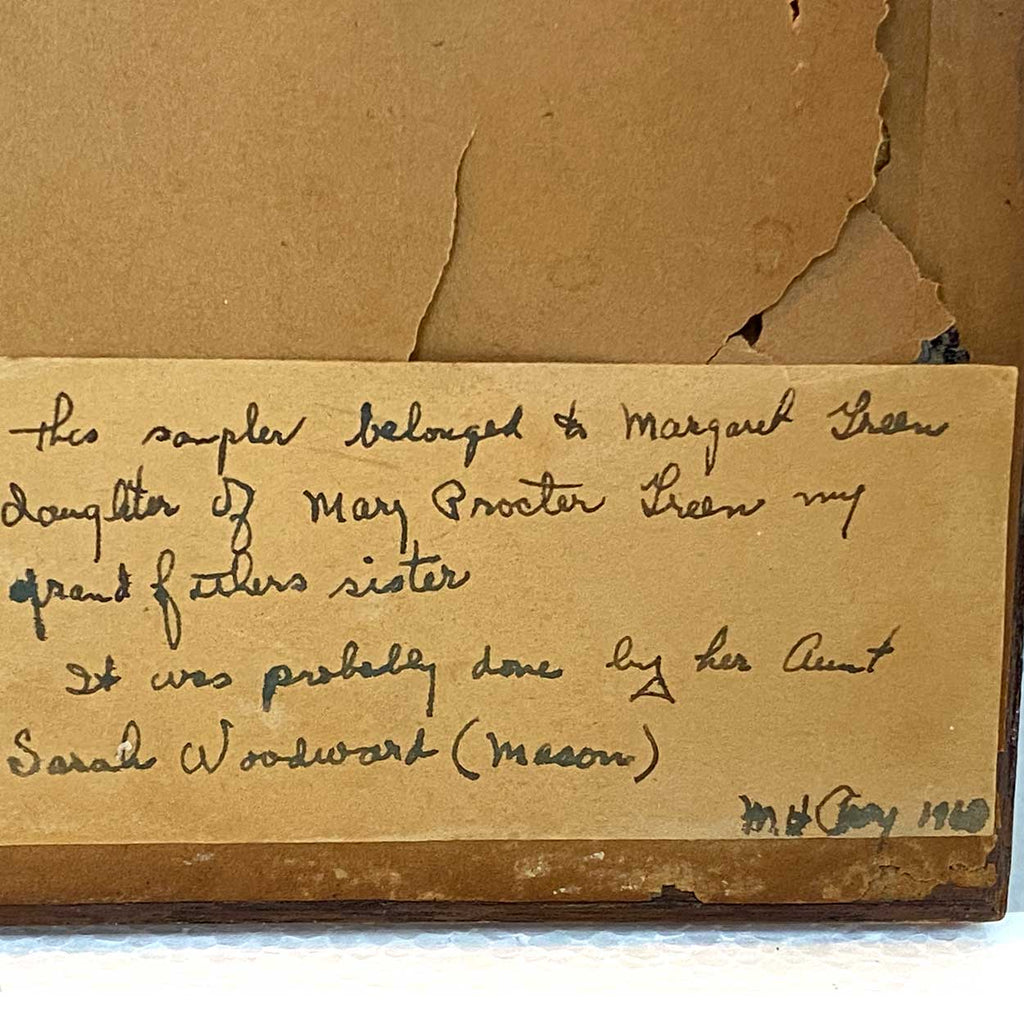 This sampler belonged to Margaret Green
daughter of Mary Procter Green my
grandfathers sister
It was probably done by her Aunt
Sarah Woodward (Mason)
M H